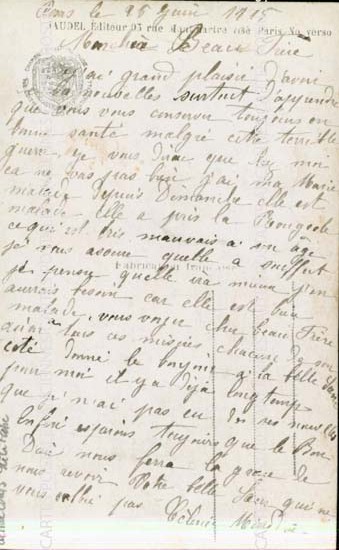 le 25 Juin 1915
DAUDEL Editeur 93 rue des Martyrs Paris Au verso
Mon cher Beau Frère
j'ai grand plaisir d'avoir
nouvelles surtout d'apprendre
que vous vous conserver toujours en
bonne santé malgré cette terrible
guerre. je vous dirai que moi
ça ne vas pas bien j'ai ma Marie
malade depuis Dimanche elle est
malade elle a pris la Rougeole
ce qui est très mauvais a son âge
je vous assure quelle a souffert
je pense quelle ira mieux
Fabrication française
aurais besoin car elle est bien
malade. vous voyez cher beau Frère
nous a tous ces misères chacun de son
coté donné le bonjour a la belle Soeur
pour moi il y a déjà longtemp
que je n'ai pas eu de ses nouvelles
Enfin espérons toujours que le Bon
Dieu nous ferra la grace de
nous revoir Votre belle Soeur qui ne
vous oublie pas